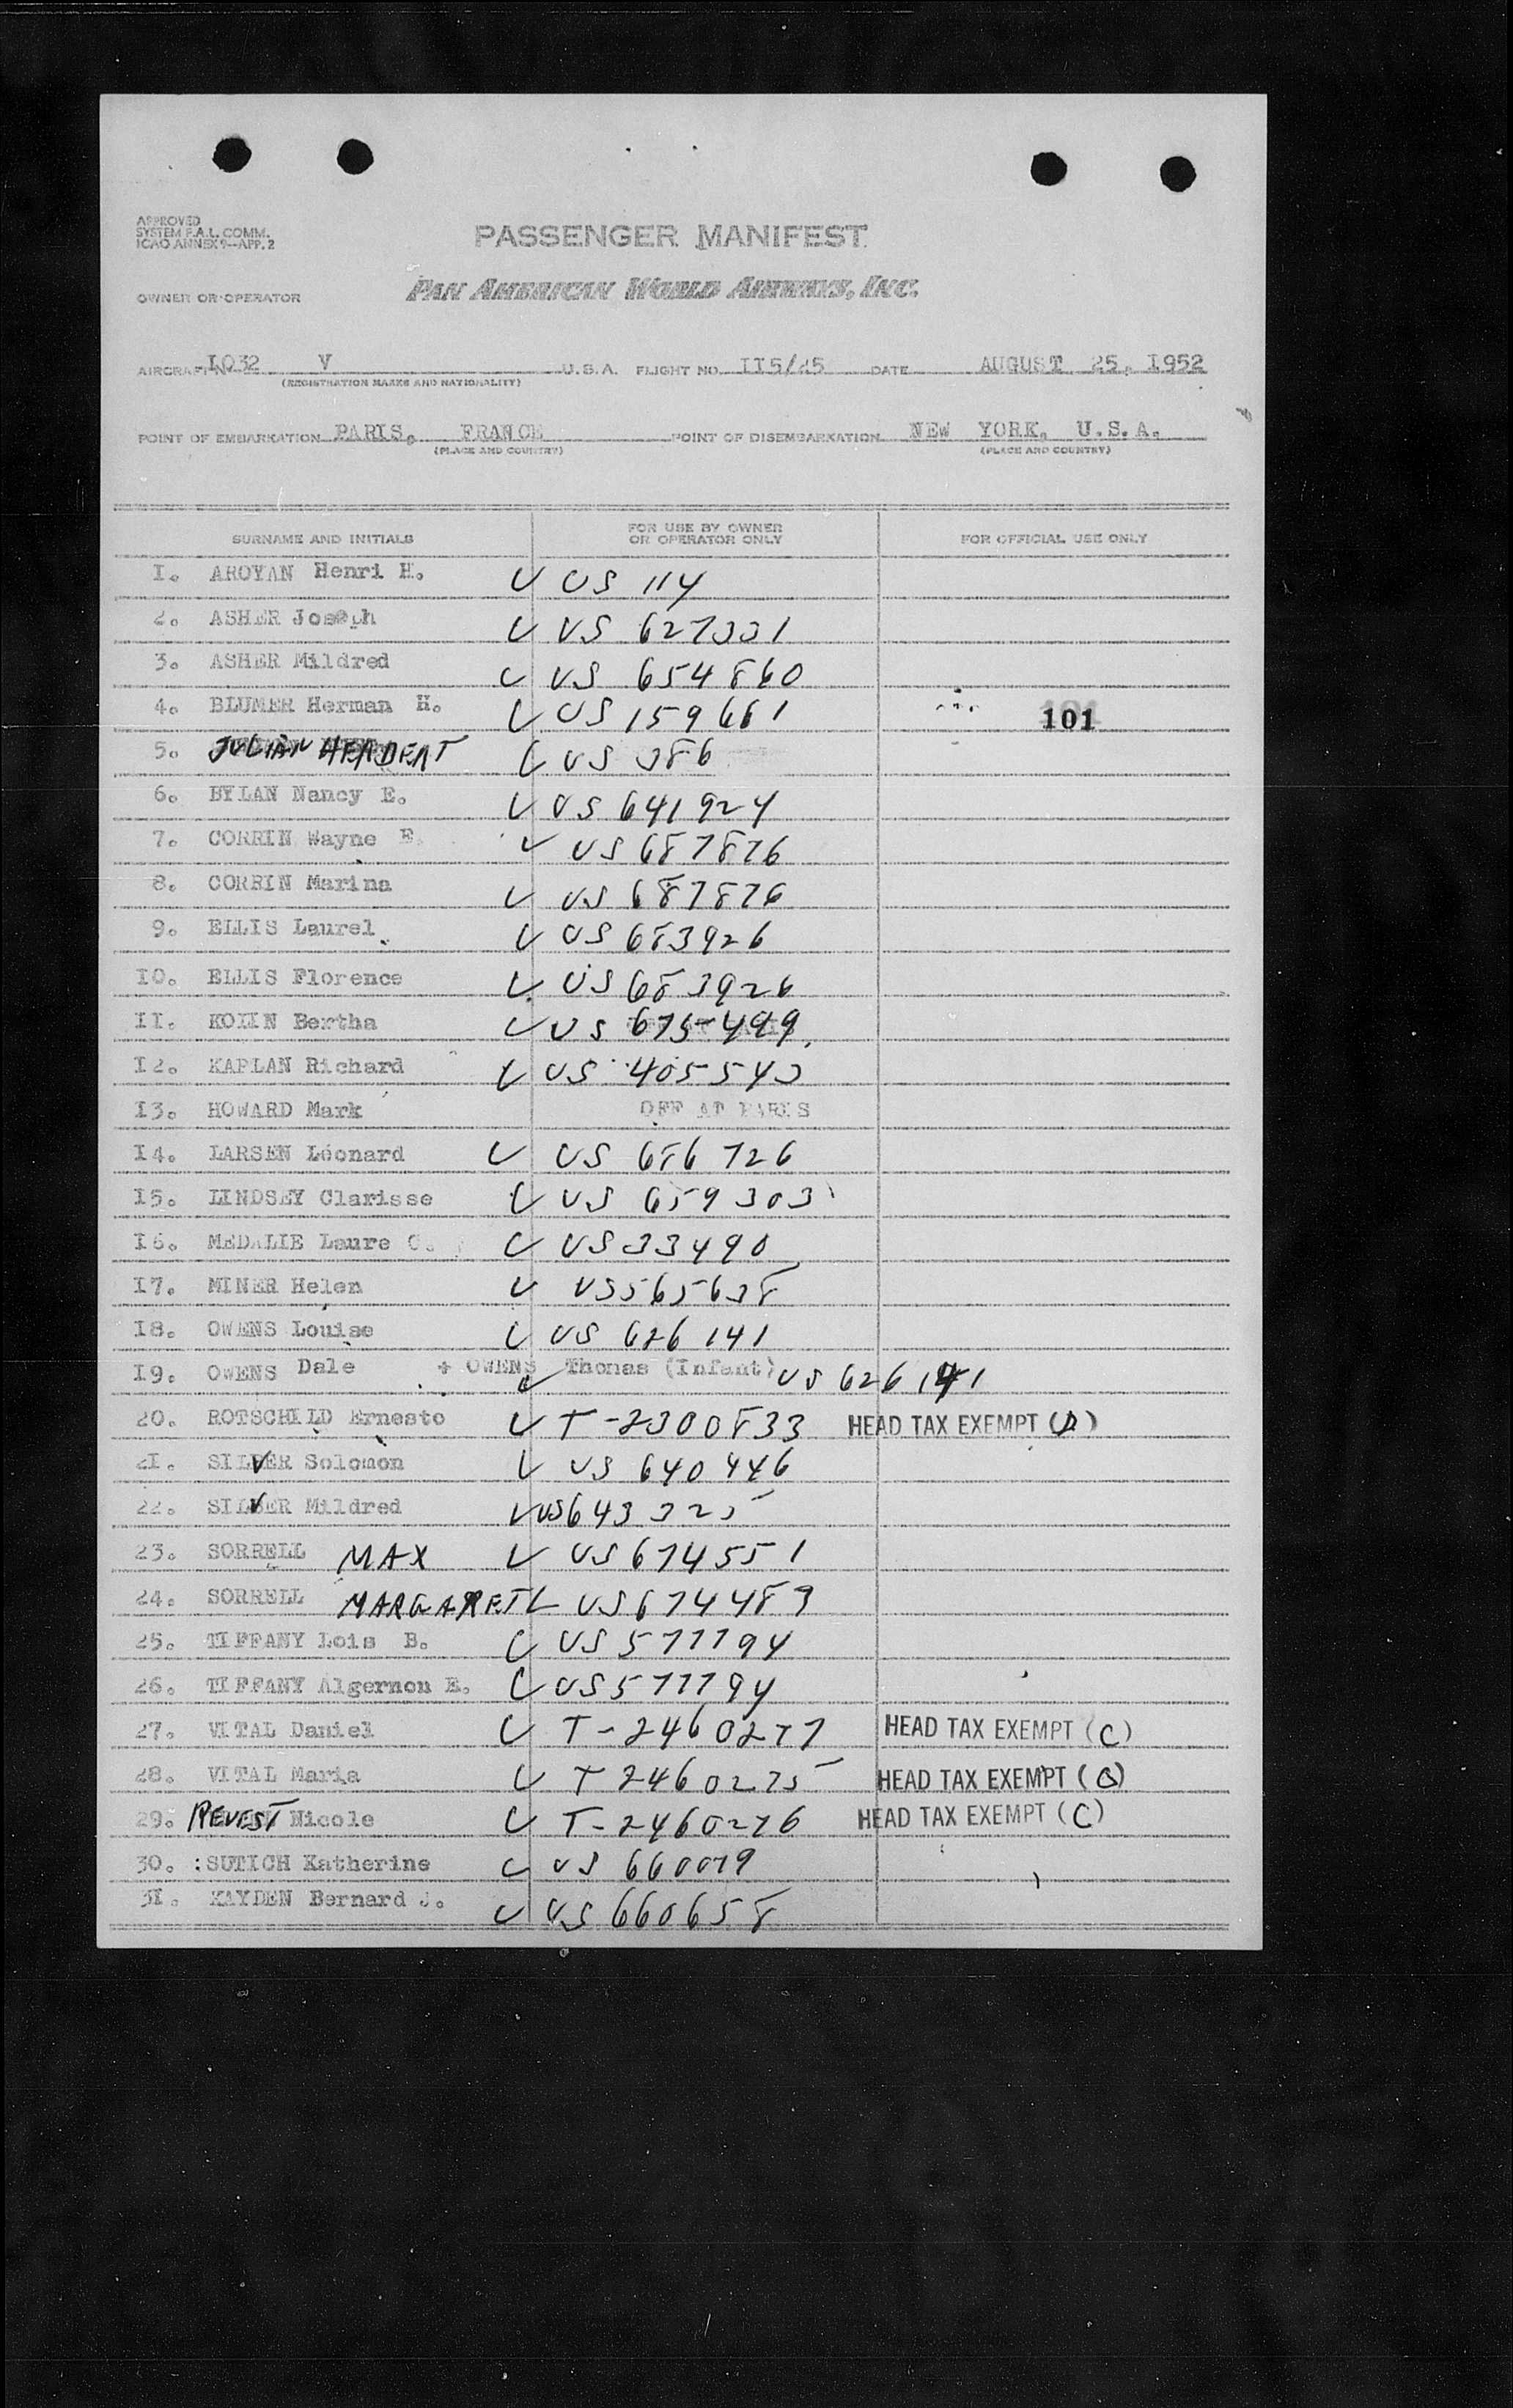 APPROVED
SYSTEM F.A.L. COMM.
ICAO ANNEX 9-APP. 2
PASSENGER MANIFEST
OWNER OR OPERATOR PAN AMERICAN WORLD AIRWAYS, INC.
AIRCRAFT N 1032 V U.S.A. FLIGHT NO. 115/25 DATE AUGUST 25, 1952
(REGISTRATION MARKS AND NATIONALITY)
POINT OF EMBARKATION PARIS, FRANCE POINT OF DISEMBARKATION NEW YORK, U.S.A.
(PLACE AND COUNTRY) (PLACE AND COUNTRY)
SURNAME AND INITIALS FOR USE BY OWNER OR OPERATOR ONLY FOR OFFICIAL USE ONLY
1. AROYAN Henri H. US 114
2. ASHER Joseph US 627331
3. ASHER Mildred US 654860
4. BLUMER Herman H. US 159681 101
5. JULIAN US 386
6. BYLAN Nancy E. US 641924
7. CORBIN Wayne E. US 687876
8. CORBIN Marina US 687876
9. ELLIS Laurel US 683926
10. ELLIS Florence US 683926
11. Bertha US 675499
12. KAPLAN Richard US 405543
13. HOWARD Mark OFF AT PARIS
14. LARSEN Léonard US 686726
15. LINDSEY Clarisse US 659303
16. MEDALIE Laure C. US 33490
17. MINER Helen US 565638
18. OWENS Louise US 626141
19. OWENS Dale + OWENS Thomas (Infant) US 626141
20. ROTSCHILD Ernesto T-2300833 HEAD TAX EXEMPT (D)
21. SILVER Solomon US 640446
22. SILVER Mildred US 643325
23. SORRELL MAX US 674551
24. SORRELL MARGARET US 674483
25. TIFFANY Lois B. US 577794
26. TIFFANY Algernon E. US 577794
27. VITAL Daniel T-2460277 HEAD TAX EXEMPT (C)
28. VITAL Maria T 2460275 HEAD TAX EXEMPT (B)
29. REVEST Nicole T-2460276 HEAD TAX EXEMPT (C)
30. SUTICH Katherine US 660079
31. KAYDEN Bernard J. US 660658